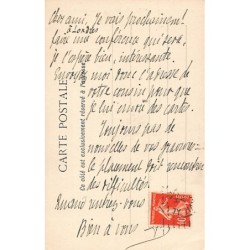 Cher ami, Je vais prochainement
à Londres
faire une conférence qui sera,
je l'espère bien, intéressante.
Envoyez moi donc l'adresse de
votre cousin pour que
je lui envoie des cartes.
Toujours pas de
nouvelles de vos gravures
le placement doit rencontrer
des difficultés.
Quand rentrez-vous
Bien à vous
CARTE POSTALE
Ce côté est exclusivement réservé à l'adresse
10